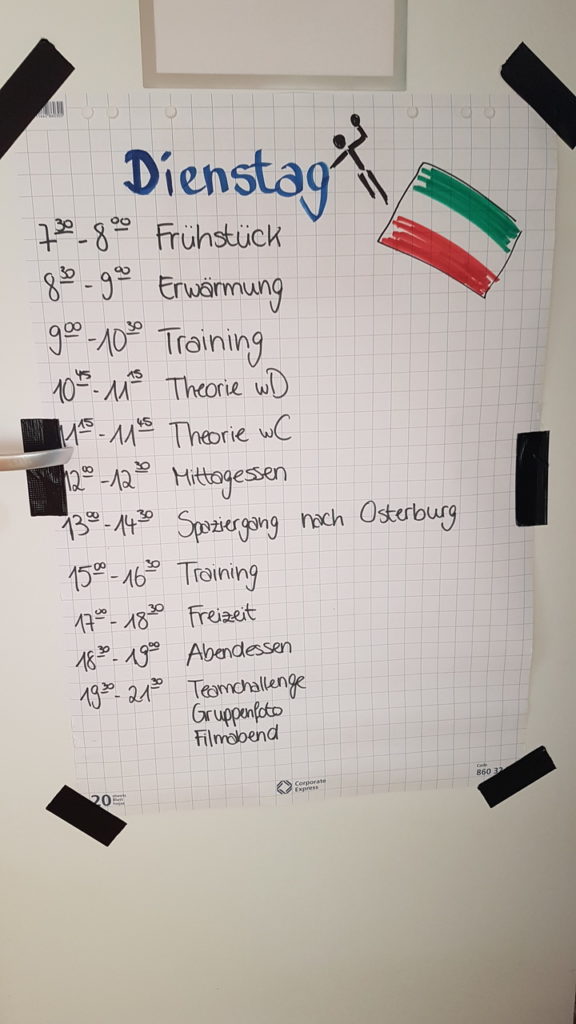 Dienstag
7³⁰ - 8⁰⁰ Frühstück
8³⁰ - 9⁰⁰ Erwärmung
9⁰⁰ - 10³⁰ Training
10⁴⁵ - 11¹⁵ Theorie wD
11¹⁵ - 11⁴⁵ Theorie wC
12⁰⁰ - 12³⁰ Mittagessen
13⁰⁰ - 14³⁰ Spaziergang nach Osterburg
15⁰⁰ - 16³⁰ Training
17⁰⁰ - 18³⁰ Freizeit
18³⁰ - 19⁰⁰ Abendessen
19³⁰ - 21³⁰ Teamchallenge
Gruppenfoto
Filmabend
20
Corporate
Express
Code
860 32